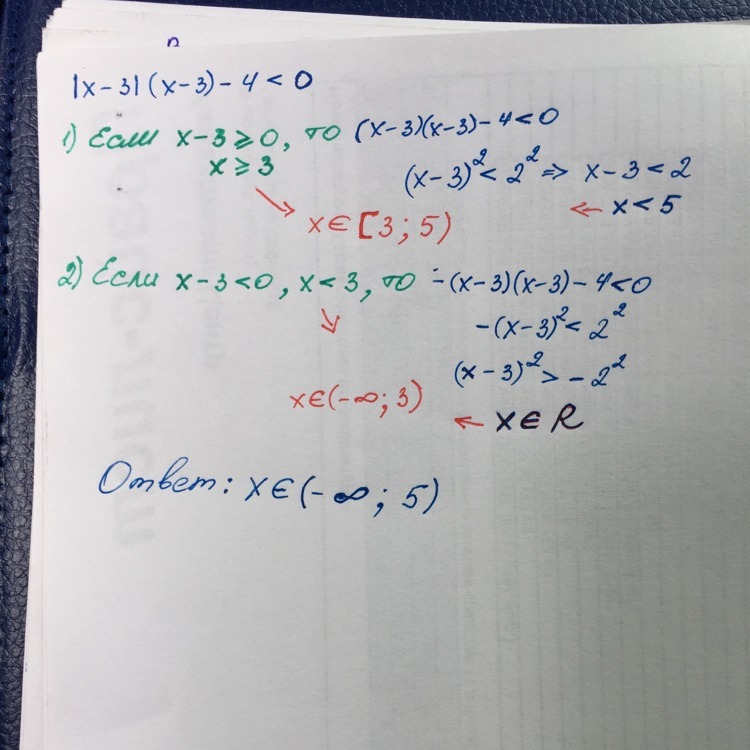 |x-3|(x-3)-4<0
1) Если x-3≥0, то (x-3)(x-3)-4<0
x≥3 (x-3)²<2² => x-3<2
x∈[3;5) ← x<5
2) Если x-3<0, x<3, то -(x-3)(x-3)-4<0
-(x-3)²<2²
(x-3)²>-2²
x∈(-∞;3) ← x∈R
Ответ: x∈(-∞; 5)